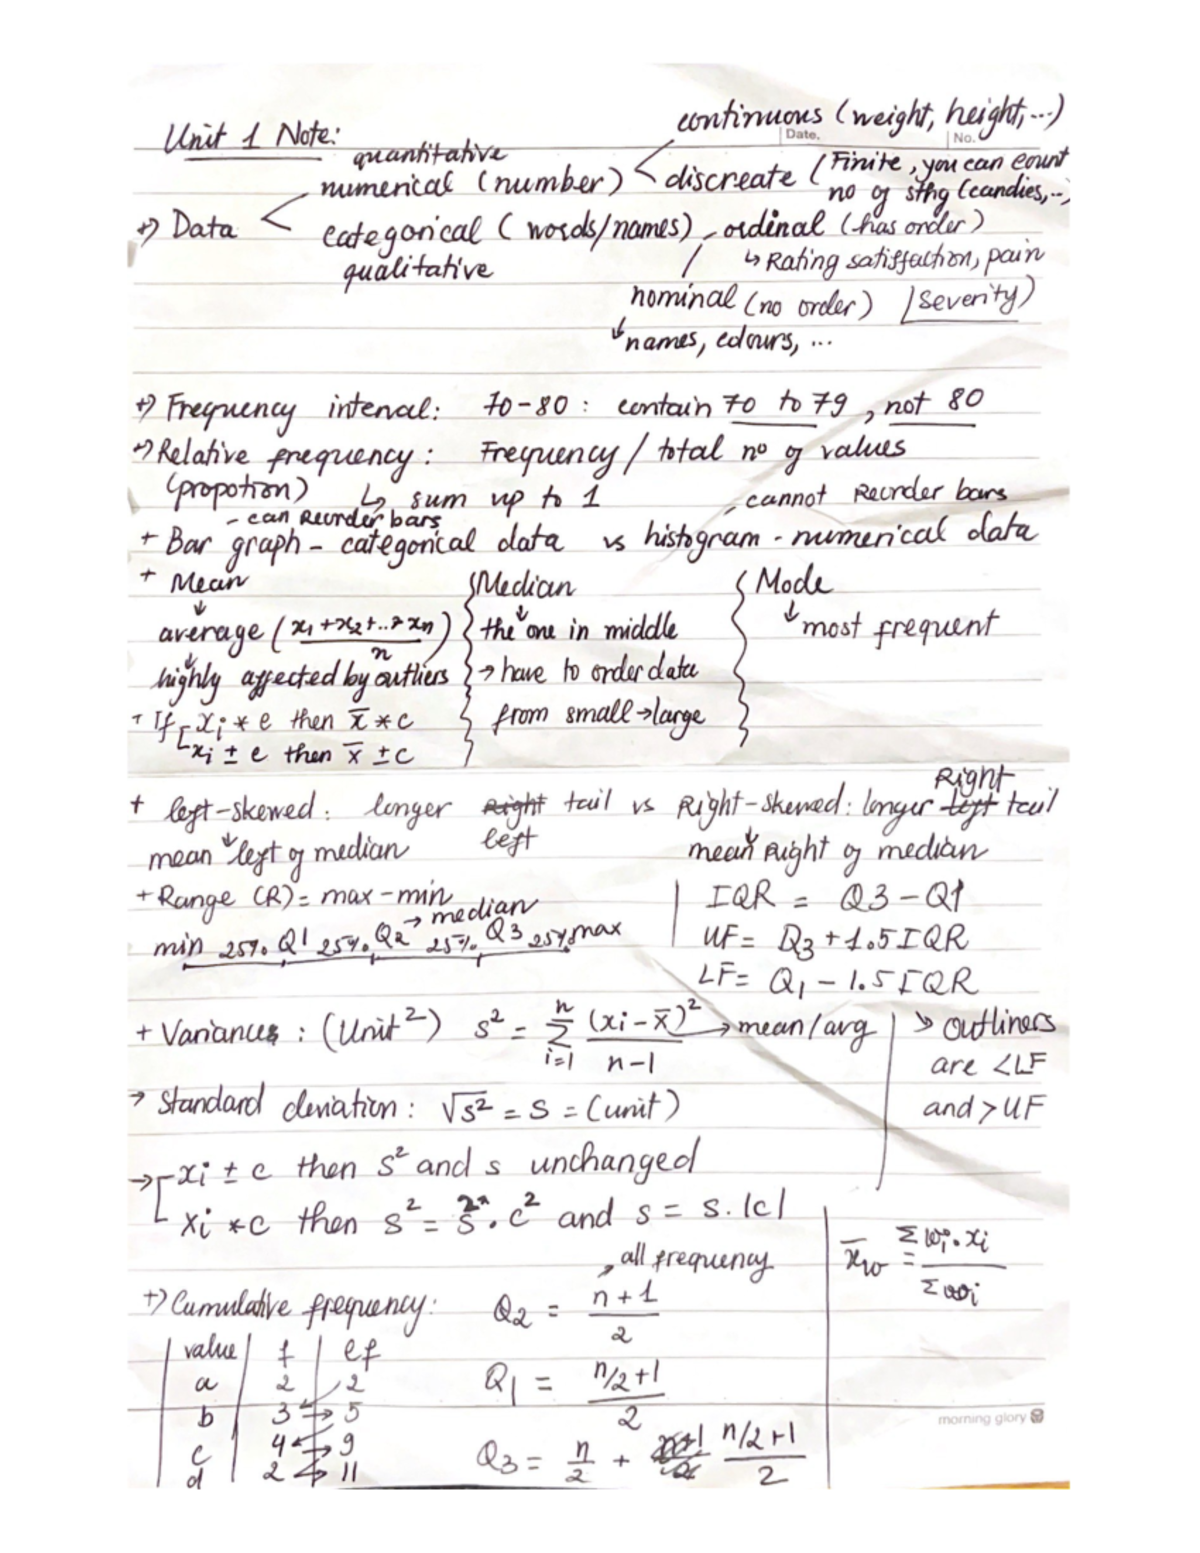 continuous (weight, height,...)
Date. No.
Unit 1 Note:
quantitative
numerical (number) < discreate (Finite, you can count
no of sthg (candies,..)
+) Data < categorical (words/names) - ordinal (has order)
qualitative
↳ Rating satisfaction, pain
nominal (no order) [severity)
↓ names, colours, ...
+) Frequency interval: 70-80: contain 70 to 79, not 80
+) Relative frequency: Frequency / total no of values
(propotion) ↳ sum up to 1
- can Reorder bars - cannot Reorder bars
+ Bar graph - categorical data vs histogram - numerical data
+ Mean Median Mode
↓ average (x₁+x₂+..+xn)/n ↓ the one in middle ↓ most frequent
↓ highly affected by outliers → have to order data
+ If [xi * c then x̄ * c from small → large
xi ± c then x̄ ± c
+ left-skewed: longer left tail vs Right-skewed: longer Right tail
mean ↓ left of median mean ↓ Right of median
+ Range (R) = max - min IQR = Q3 - Q1
→ median
min 25% Q1 25% Q2 25% Q3 25% max UF = Q3 + 1.5 IQR
LF = Q1 - 1.5 IQR
+ Variances: (Unit²) s² = n Σ i=1 (xi - x̄)² / n-1 → mean/avg ↘ outliners
are <LF
and > UF
→ Standard deviation: √s² = s = (unit)
→ [xi ± c then s² and s unchanged
xi * c then s² = s². c² and s = s. |c|
x̄w = Σwi.xi / Σwi
→ all frequency
+) Cumulative frequency: Q2 = n+1 / 2
value f cf
a 2 2
Q1 = n/2+1 / 2
b 3 → 5
morning glory
c 4 → 9
Q3 = n/2 + n/2+1 / 2
d 2 → 11